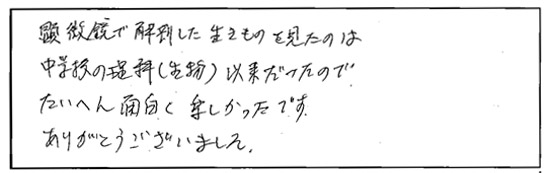 顕微鏡で解剖した生きものを見たのは
中学校の理科(生物)以来だったので
たいへん面白く楽しかったです
ありがとうございました。